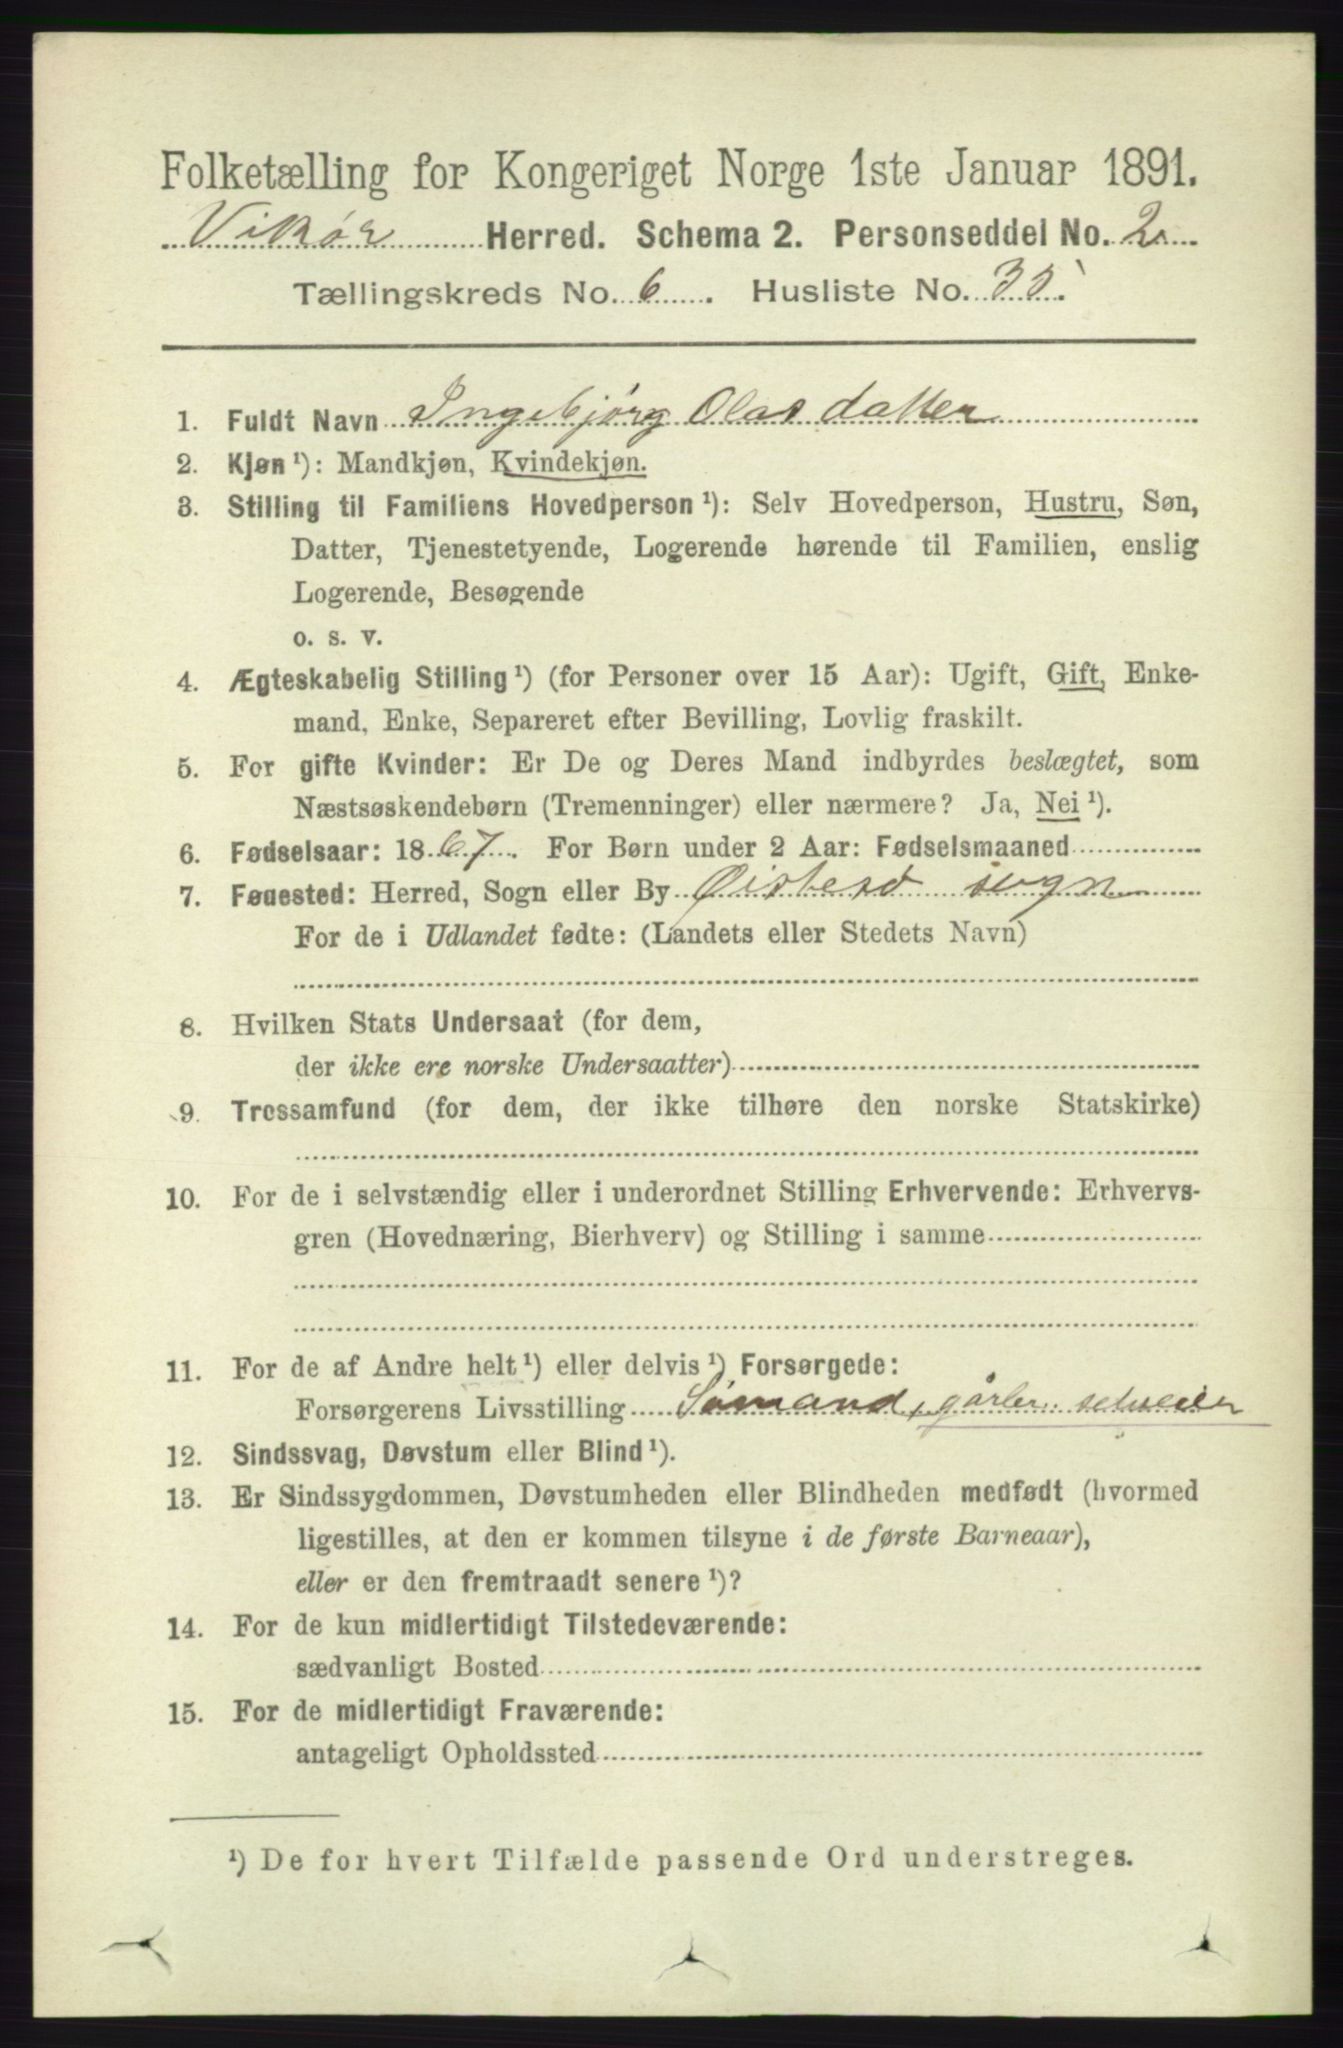 Folketælling for Kongeriget Norge 1ste Januar 1891.
Vikør Herred. Schema 2. Personseddel No. 2.
Tællingskreds No. 6. Husliste No. 35.
1. Fuldt Navn Ingebjørg Olasdatter
2. Kjøn ¹): Mandkjøn, Kvindekjøn.
3. Stilling til Familiens Hovedperson ¹): Selv Hovedperson, Hustru, Søn,
Datter, Tjenestetyende, Logerende hørende til Familien, enslig
Logerende, Besøgende
o. s. v.
4. Ægteskabelig Stilling ¹) (for Personer over 15 Aar): Ugift, Gift, Enke-
mand, Enke, Separeret efter Bevilling, Lovlig fraskilt.
5. For gifte Kvinder: Er De og Deres Mand indbyrdes beslægtet, som
Næstsøskendebørn (Tremenninger) eller nærmere? Ja, Nei ¹).
6. Fødselsaar: 1867. For Børn under 2 Aar: Fødselsmaaned
7. Føuested: Herred, Sogn eller By Øistesø sogn
For de i Udlandet fødte: (Landets eller Stedets Navn)
8. Hvilken Stats Undersaat (for dem,
der ikke ere norske Undersaatter)
9. Trossamfund (for dem, der ikke tilhøre den norske Statskirke)
10. For de i selvstændig eller i underordnet Stilling Erhvervende: Erhvervs-
gren (Hovednæring, Bierhverv) og Stilling i samme
11. For de af Andre helt ¹) eller delvis ¹) Forsørgede:
Forsørgerens Livsstilling Sømand, gårbr. selveier
12. Sindssvag, Døvstum eller Blind ¹).
13. Er Sindssygdommen, Døvstumheden eller Blindheden medfødt (hvormed
ligestilles, at den er kommen tilsyne i de første Barneaar),
eller er den fremtraadt senere ¹)?
14. For de kun midlertidigt Tilstedeværende:
sædvanligt Bosted
15. For de midlertidigt Fraværende:
antageligt Opholdssted
¹) De for hvert Tilfælde passende Ord understreges.